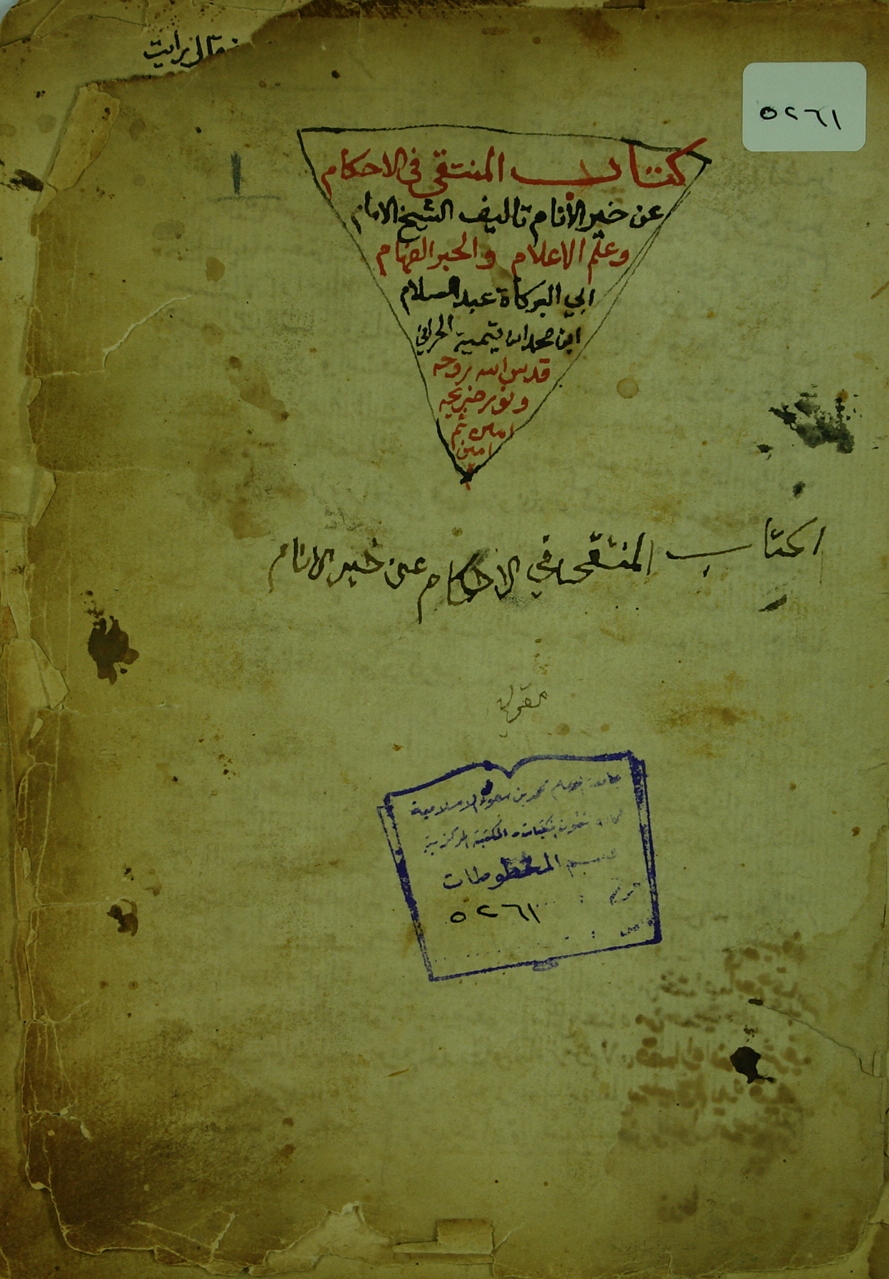 ٥٢٦١
كتاب المنتقى في الاحكام
عن خير الأنام تاليف الشيخ الامام
وعلم الاعلام والحبر الفهام
ابي البركاة عبد السلام
ابن محمد ابن تيمية الحراني
قدس الله روحه
ونور ضريحه
امين ثم
امين
١
الكتاب المنتقى في الاحكام عن خير الانام
جامعة الامام محمد بن سعود الاسلامية
عمادة شئون المكتبات - المكتبة المركزية
قسم المخطوطات
رقم
٥٢٦١